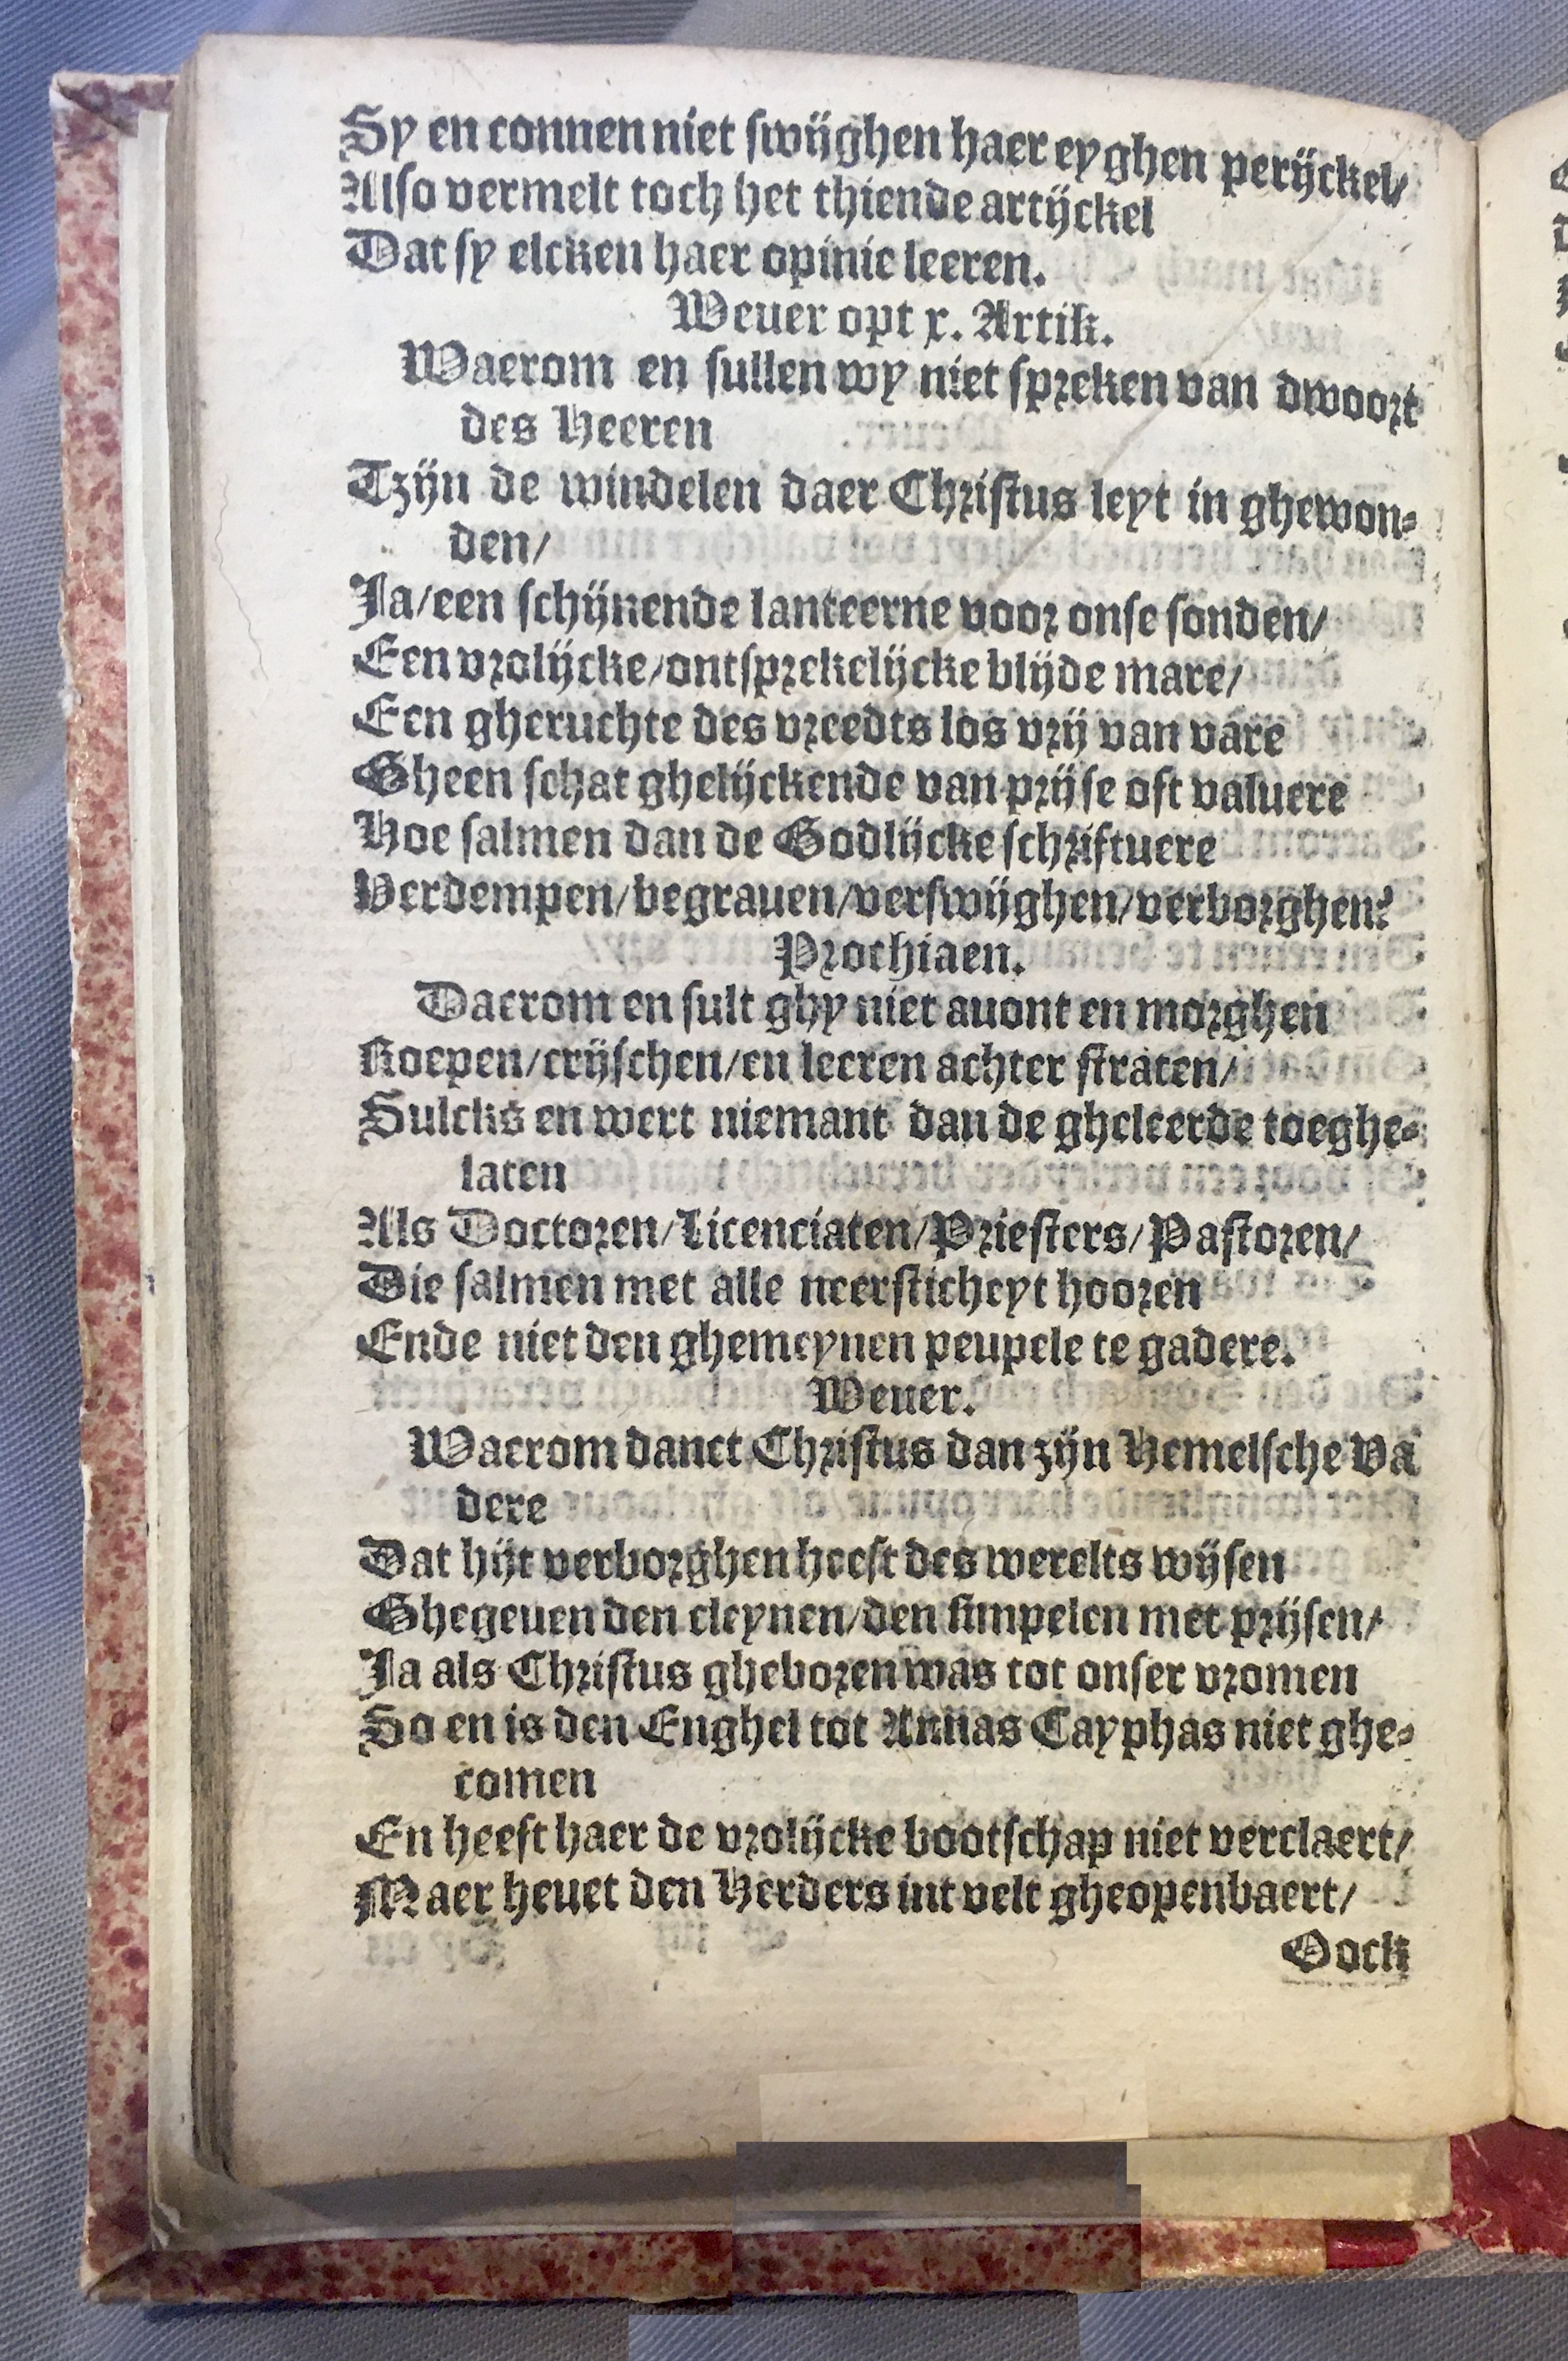 Sy en connen niet swijghen haer eyghen perijckel/
Also vermelt toch het thiende artijckel
Dat sy elcken haer opinie leeren.
Weuer opt x. Artik.
Waerom en sullen wy niet spreken van dwoort
des Heeren
Tzijn de windelen daer Christus leyt in ghewon-
den/
Ja/een schijnende lanteerne voor onse sonden/
Een vrolijcke/ontsprekelijcke blijde mare/
Een gheruchte des vreedts los vrij van vare
Gheen schat ghelijckende van prijse oft valuere
Hoe salmen dan de Godlijcke schriftuere
Verdempen/begrauen/verswijghen/verborghen?
Prochiaen.
Daerom en sult ghy niet auont en morghen
Roepen/crijschen/en leeren achter straten/
Sulcks en wert niemant dan de gheleerde toeghe-
laten
Als Doctoren/Licenciaten/Priesters/Pastoren/
Die salmen met alle neersticheyt hooren
Ende niet den ghemeynen peupele te gadere.
Weuer.
Waerom danct Christus dan zijn Hemelsche Va
dere
Dat hijt verborghen heeft des werelts wijsen
Ghegeuen den cleynen/den simpelen met prijsen/
Ja als Christus gheboren was tot onser vromen
So en is den Enghel tot Annas Cayphas niet ghe-
comen
En heeft haer de vrolijcke bootschap niet verclaert/
Maer heuet den Herders int velt gheopenbaert/
Oock